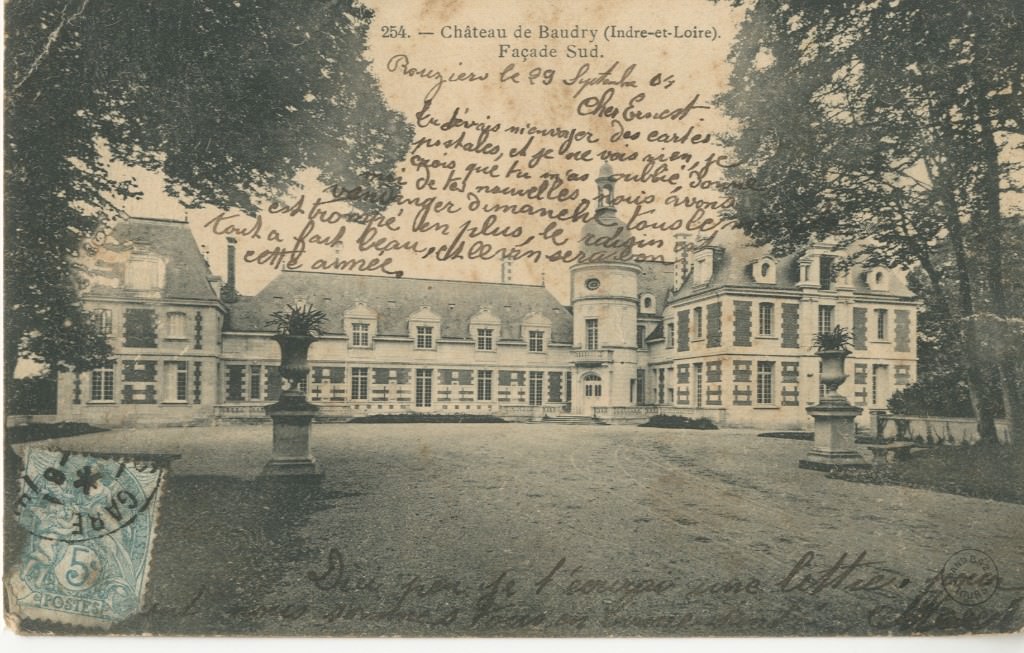 254. — Château de Baudry (Indre-et-Loire).
Façade Sud.
Rouziers le 29 Septembre 04
Cher Ernest
tu devais m'envoyer des cartes
postales, et je ne vois rien, je
crois que tu m'as oublié, donne
moi de tes nouvelles, nous avons
vendanger dimanche tous le
est trompé en plus, le raisin
tout a fait beau, et le vin sera bon
cette année,
GARE
5c
POSTES
je t'envoyai une lettre, pour
nous sommes tous en